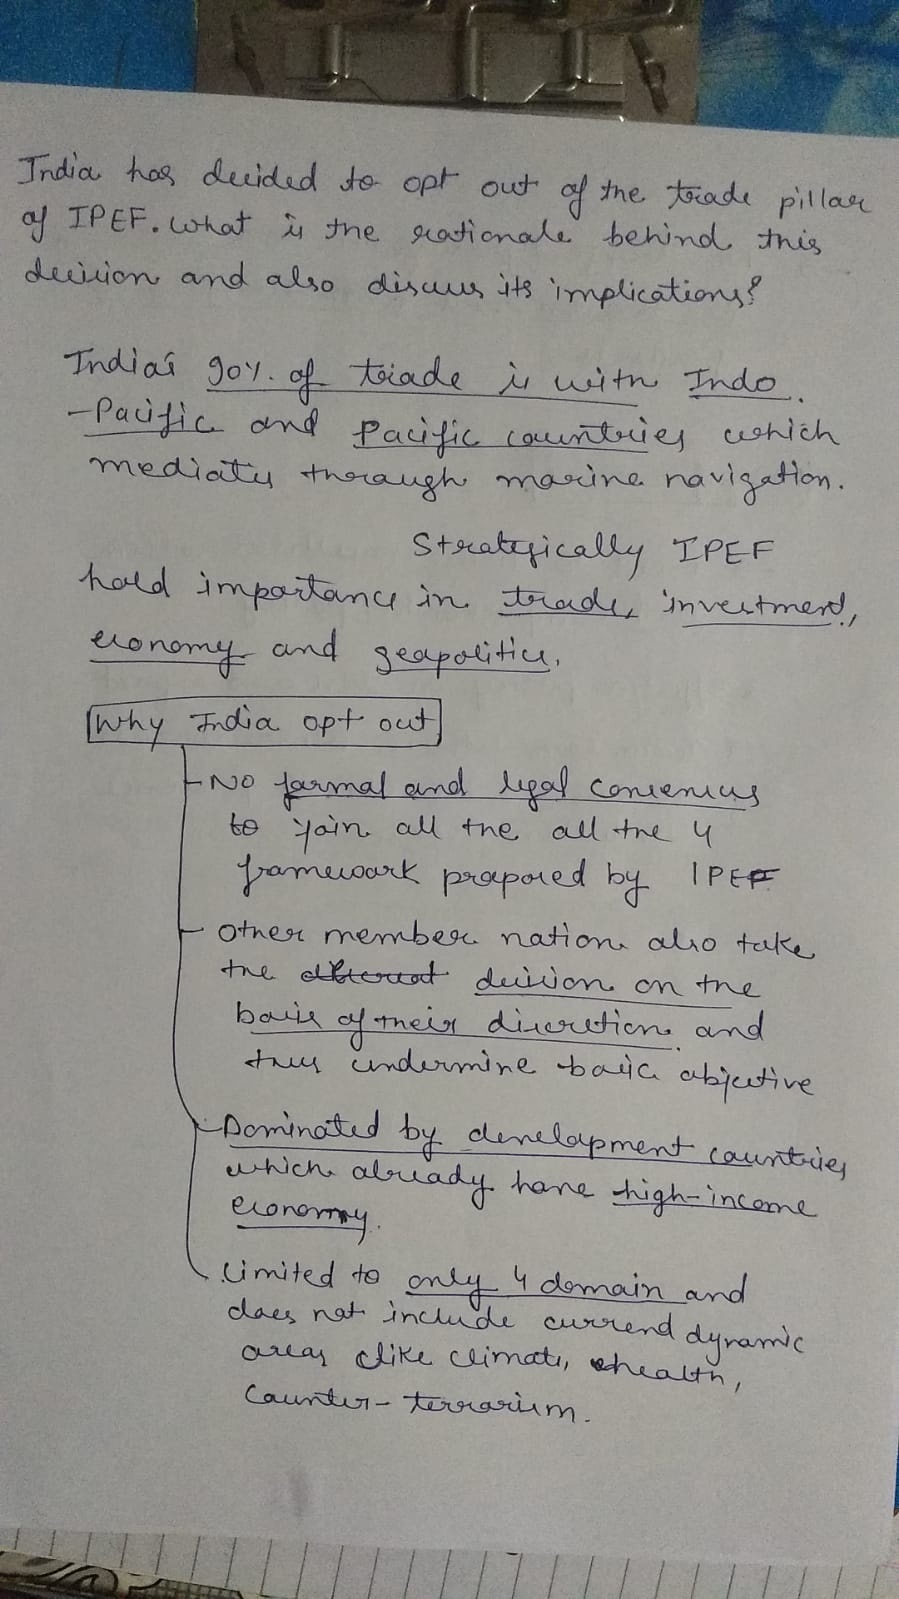 India has decided to opt out of the trade pillar
of IPEF. What is the rationale behind this
decision and also discuss its implications?
India's 90% of trade is with Indo
-Pacific and Pacific countries which
mediates through marine navigation.
Strategically IPEF
hold importance in trade, investment,
economy and geopolitics.
Why India opt out
- No formal and legal consensus
to join all the all the 4
framework proposed by IPEF
- other member nation also take
the decision on the
basis of their discretion and
thus undermine basic objective
- Dominated by development countries
which already have high-income
economy.
- Limited to only 4 domain and
does not include currend dynamic
areas like climate, health,
counter-terrorism.